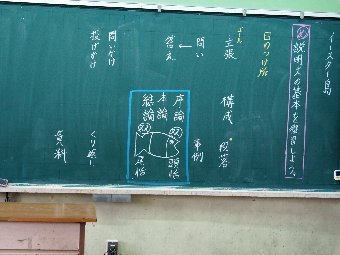 イースター島
め 説明文の基本を確認しよう。
目のつけ所
主張
問い
↓
答え
問いかけ
投げかけ
構成
段落
事例
序論
本論
結論
頭括
尾括
双括
くり返し
資料